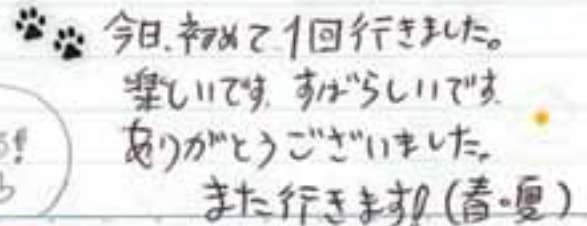 今日、初めて1回行きました。
楽しいです。すばらしいです。
ありがとうございました。
また行きます!(春・夏)